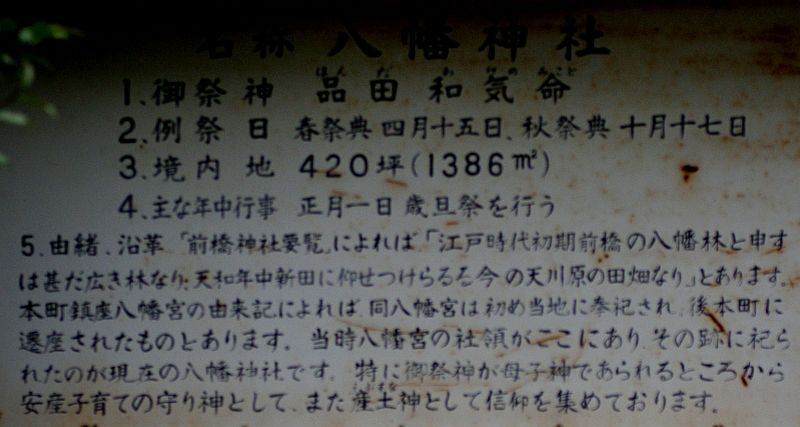 名称 八幡神社
1、御祭神 品田和気命
ほんだわけのみこと
2、例祭日 春祭典 四月十五日、秋祭典 十月十七日
3、境内地 420坪(1386㎡)
4、主な年中行事 正月一日 歳旦祭を行う
5、由緒、沿革 「前橋神社要覧」によれば、「江戸時代初期前橋の八幡林と申す
は甚だ広き林なり、天和年中新田に仰せつけらるる今の天川原の田畑なり」とあります。
本町鎮座八幡宮の由来記によれば、同八幡宮は初め当地に奉祀され、後本町に
遷座されたものとあります。当時八幡宮の社領がここにあり、その跡に祀ら
れたのが現在の八幡神社です。特に御祭神が母子神であられるところから
安産子育ての守り神として、また産土神として信仰を集めております。
うぶすな